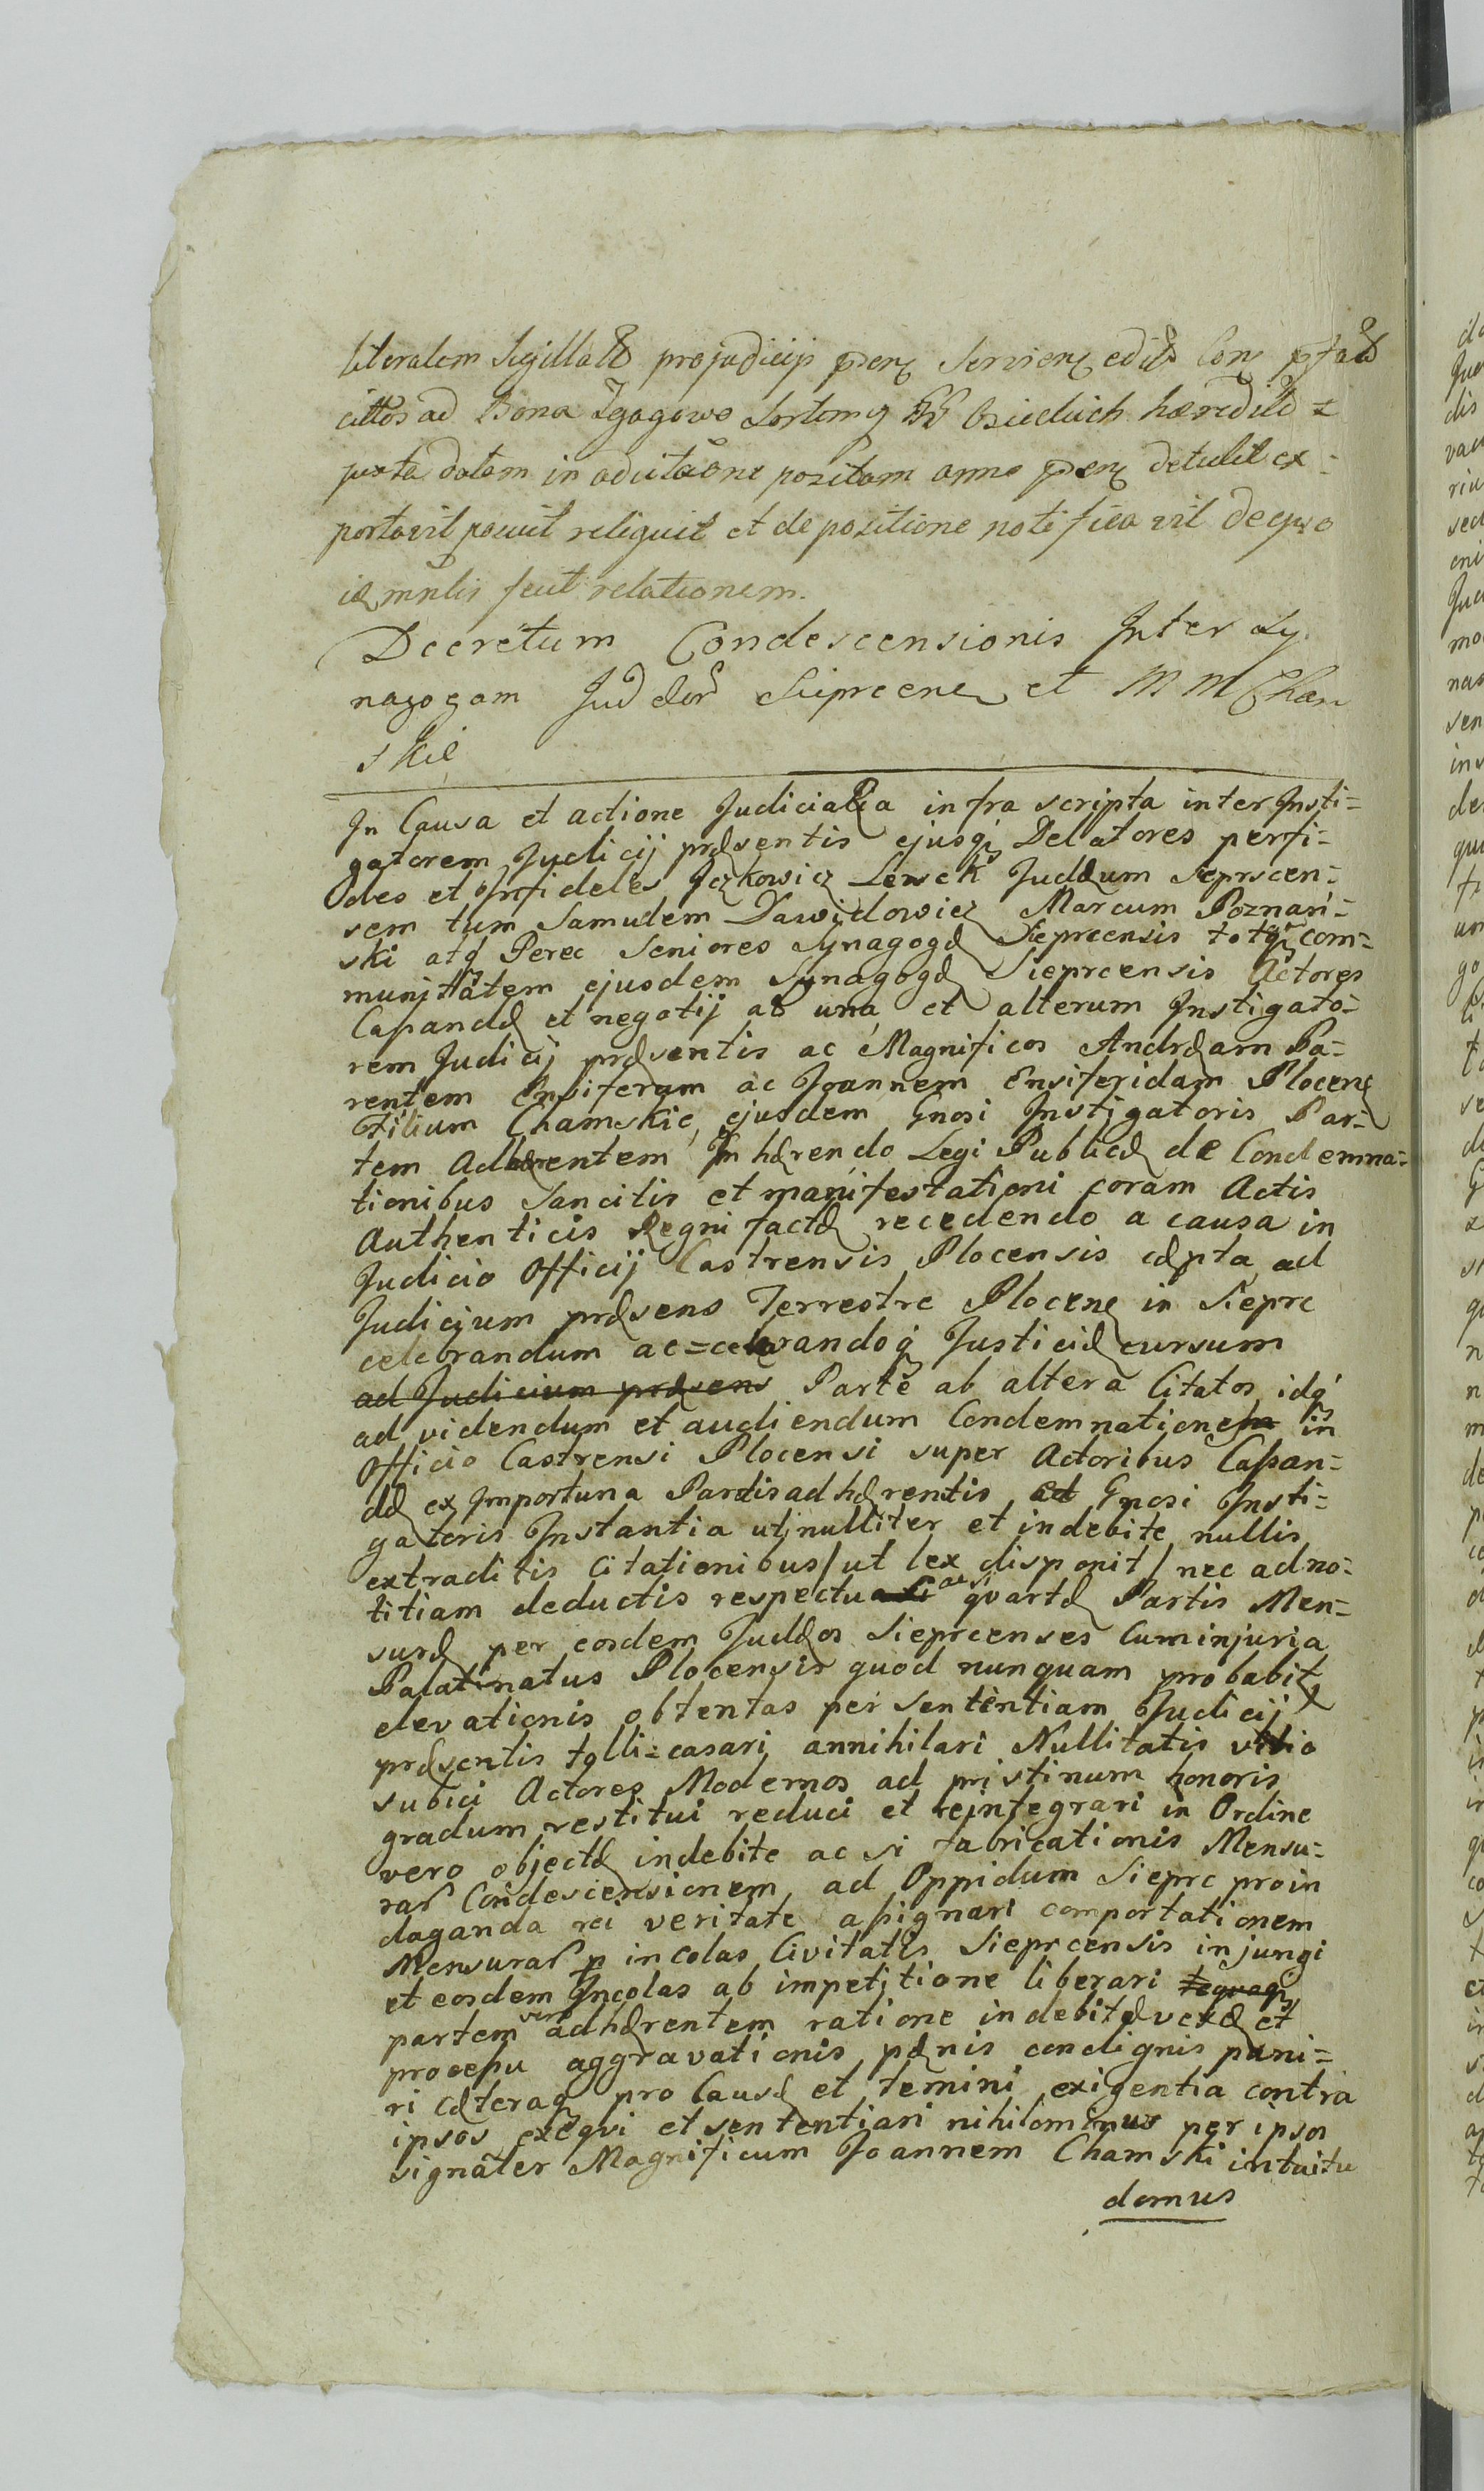 literalem Sigillatõ præjudicijs præsen Servien edito Con
citatos ad Bona Zgagowo Sortemq GG Osieckich hæreditõ
juxta datam in aducitaõne positam anno præsen detulit ex=
portavit posuit reliquit et de positione notificavit de quo
mnlis fecit relationem.
Decretum Condescensionis Inter Sy
nagogam Judæor Sieprcen et M M Cham
skie
In Causa et actione Judicialia infra scripta inter Insti=
gatorem Judicij præsentis ejusq Delatores perfi=
dos et Infideles Jczkowicz Lewek Judæum Sieprcen=
sem tum Samuelem Dawidowicz Marcum Poznań=
ski atq Perec Seniores Synagogæ Sieprcensis totãq com=
munitãtem ejusdem Synagogæ Sieprcensis Actores
Caßandæ et negotij ab una et alterum Instigato=
rem Judicij præsentis ac Magnificos Andræam Pa=
rentem Ensiferum ac Joannem Ensiferidam Plocen
Filium Chamskie, ejusdem Gnosi Instigatoris Par=
tem Adhærentem Inhærendo Legi Publicæ de Condemna=
tionibus Sancitis et manifestationi coram Actis
Authenticis Regni factæ recedendo a causa in
Judicio Officij Castrensis Plocensis cæpta ad
Judicium præsens Terrestre Plocen in Sieprc
celebrandum ac=celerandoq Justiciæ cursum
ad Judicium præsens Parte ab altera Citatos idq
ad videndum et audiendum Condemnationes in
Officio Castrensi Plocensi super Actoribus Caßan=
dæ ex Importuna Partis adhærentis et Gnosi Insti=
gatoris Instantia uti nulliter et indebite nullis
extraditis Citationibus / ut lex disponit / nec ad no=
titiam deductis respectu ac si quartæ Partis Men=
suræ per eosdem Judæos Sieprcenses Cum injuria
Palatinatus Plocensis quod nunquam probabit
elevationis obtentas per Sententiam Judicij
præsentis tolli=casari annihilari Nullitatis vitio
subici Actores Modernos ad pristinum honoris
gradum restitui reduci et reintegrari in Ordine
vero objectæ indebite ac si fabricationis Mensu=
rar Condescensionem ad Oppidum Sieprc pro in
daganda rei veritate aßignari comportationem
Mensurar p incolas Civitatis Sieprcensis injungi
et eosdem Incolas ab impetitione liberari
partem vero adhærentem ratione indebitæ vexæ et
proceßu aggravationis pænis condignis puni=
ri cæteraq pro Causæ et temini exigentia contra
ipsos exequi et sententiari nihilominus per ipsos
signãter Magnificum Joannem Chamski intuitu
domus